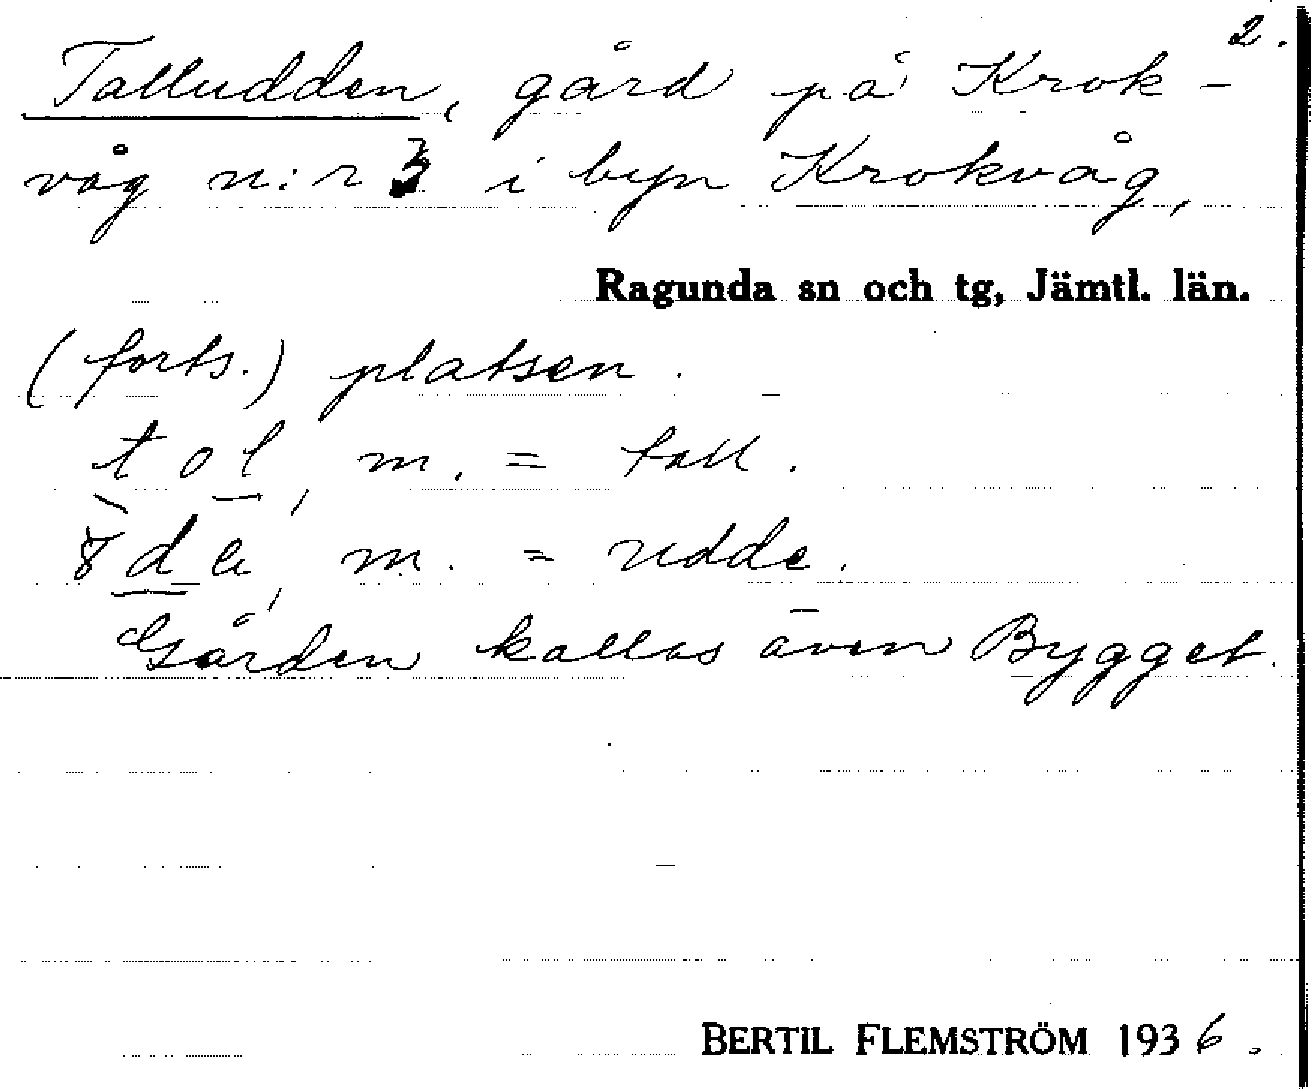 2.
Talludden, gård på Krok-
våg n:r 3 i byn Krokvåg,
Ragunda sn och tg, Jämtl. län.
(forts.) platsen.
tol, m. = tall.
m. = udde.
Gården kallas även Bygget.
BERTIL FLEMSTRÖM 1936.